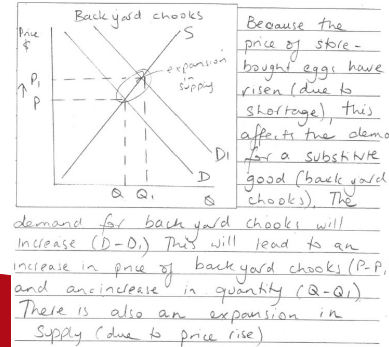 Back yard chooks
Price
$
S
P1
P
expansion
in
supply
D1
D
Q Q1 Q
Because the
price of store-
bought eggs have
risen (due to
shortage), this
affects the demo
for a substitute
good (back yard
chooks). The
demand for back yard chooks will
increase (D-D1) This will lead to an
increase in price of back yard chooks (P-P1
and an increase in quantity (Q-Q1)
There is also an expansion in
supply (due to price rise)